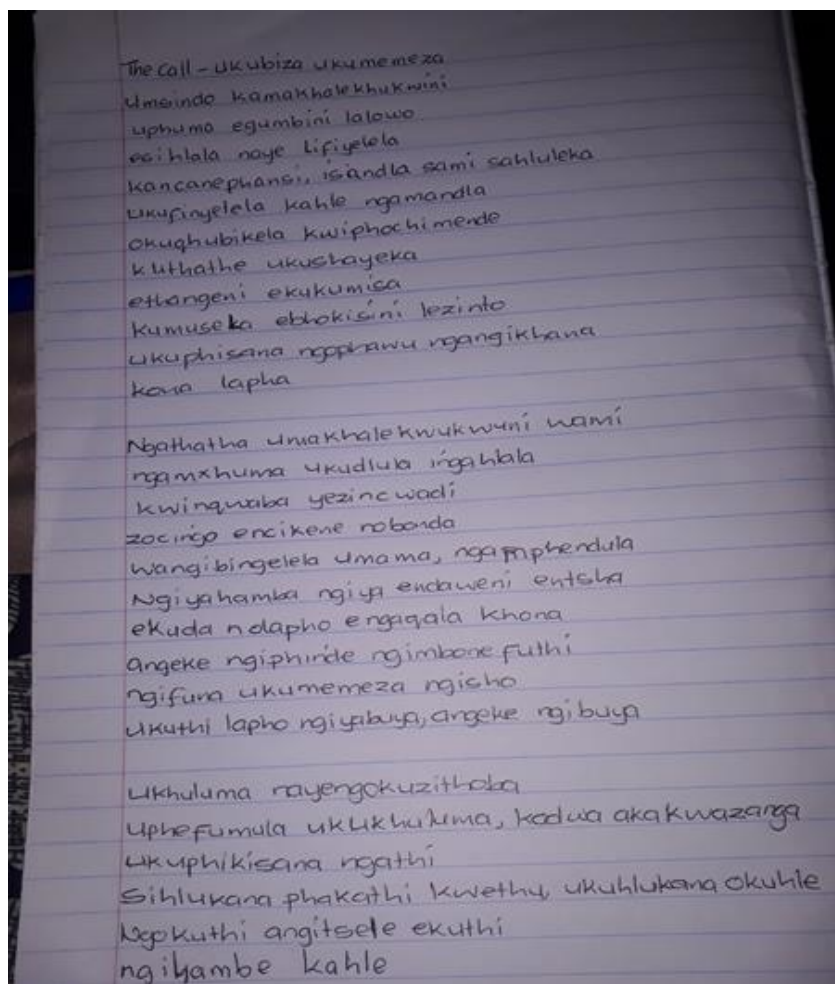 The call - ukubiza ukumemeza
Umsindo kamakhalekhukwini
uphuma egumbini lalowo
esihlala naye lifiyelela
kancanephansi, isandla sami sahluleka
Ukufinyelela kahle ngamandla
okuqhubikela kwiphochimende
kuthathe ukushayeka
ethangeni ekukumisa
kumuseka ebhokisini lezinto
ukuphisana ngophawu ngangikhana
kona lapha
Ngathatha umakhalekwukwuni wami
ngamxhuma ukudlula ingahlala
kwinqwaba yezincwadi
zocingo encikene nobonda
wangibingelela umama, ngamphendula
Ngiyahamba ngiya endaweni entsha
ekuda nolapho engaqala khona
angeke ngiphinde ngimbone futhi
ngifuna ukumemeza ngisho
ukuthi lapho ngiyabuya, angeke ngibuya
Ukhuluma nayengokuzithoba
Uphefumula ukukhuluma, kodwa akakwazanga
ukuphikisana ngathi
Sihlukana phakathi kwethu, ukuhlukana okuhle
Ngokuthi angitsele ekuthi
ngihambe kahle